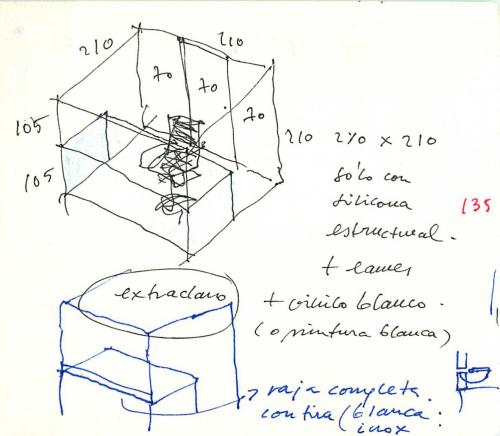 210
210
70
70
70
105
105
210
210 x 210
sólo con
silicona
estructural.
135
+ eames
+ vinilo blanco.
(o pintura blanca)
extraclaro
raja completa.
con tira (blanca:
inox